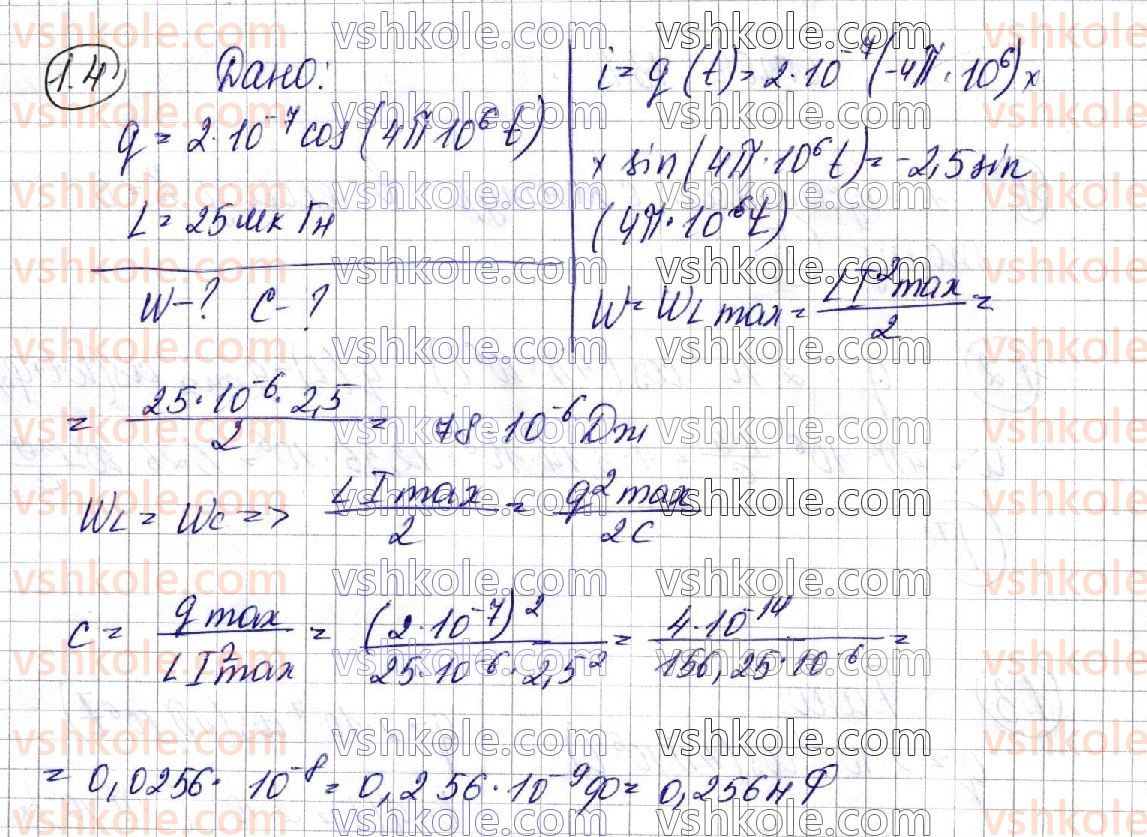 1.4 Дано:
q = 2·10⁻⁷ cos(4π10⁶t)
L = 25 мкГн
W - ? C - ?
i = q(t) = 2·10⁻⁷(-4π·10⁶)×
× sin(4π·10⁶t) = -2,5 sin
(4π·10⁶t)
W = W_L max = LI²max/2 =
= 25·10⁻⁶·2,5/2 = 78·10⁻⁶ Дж
W_L = W_C => LImax/2 = q²max/2C
C = qmax/LI²max = (2·10⁻⁷)²/25·10⁻⁶·2,5² = 4·10⁻¹⁴/156,25·10⁻⁶ =
= 0,0256·10⁻⁸ = 0,256·10⁻⁹ Ф = 0,256 нФ
vshkole.com